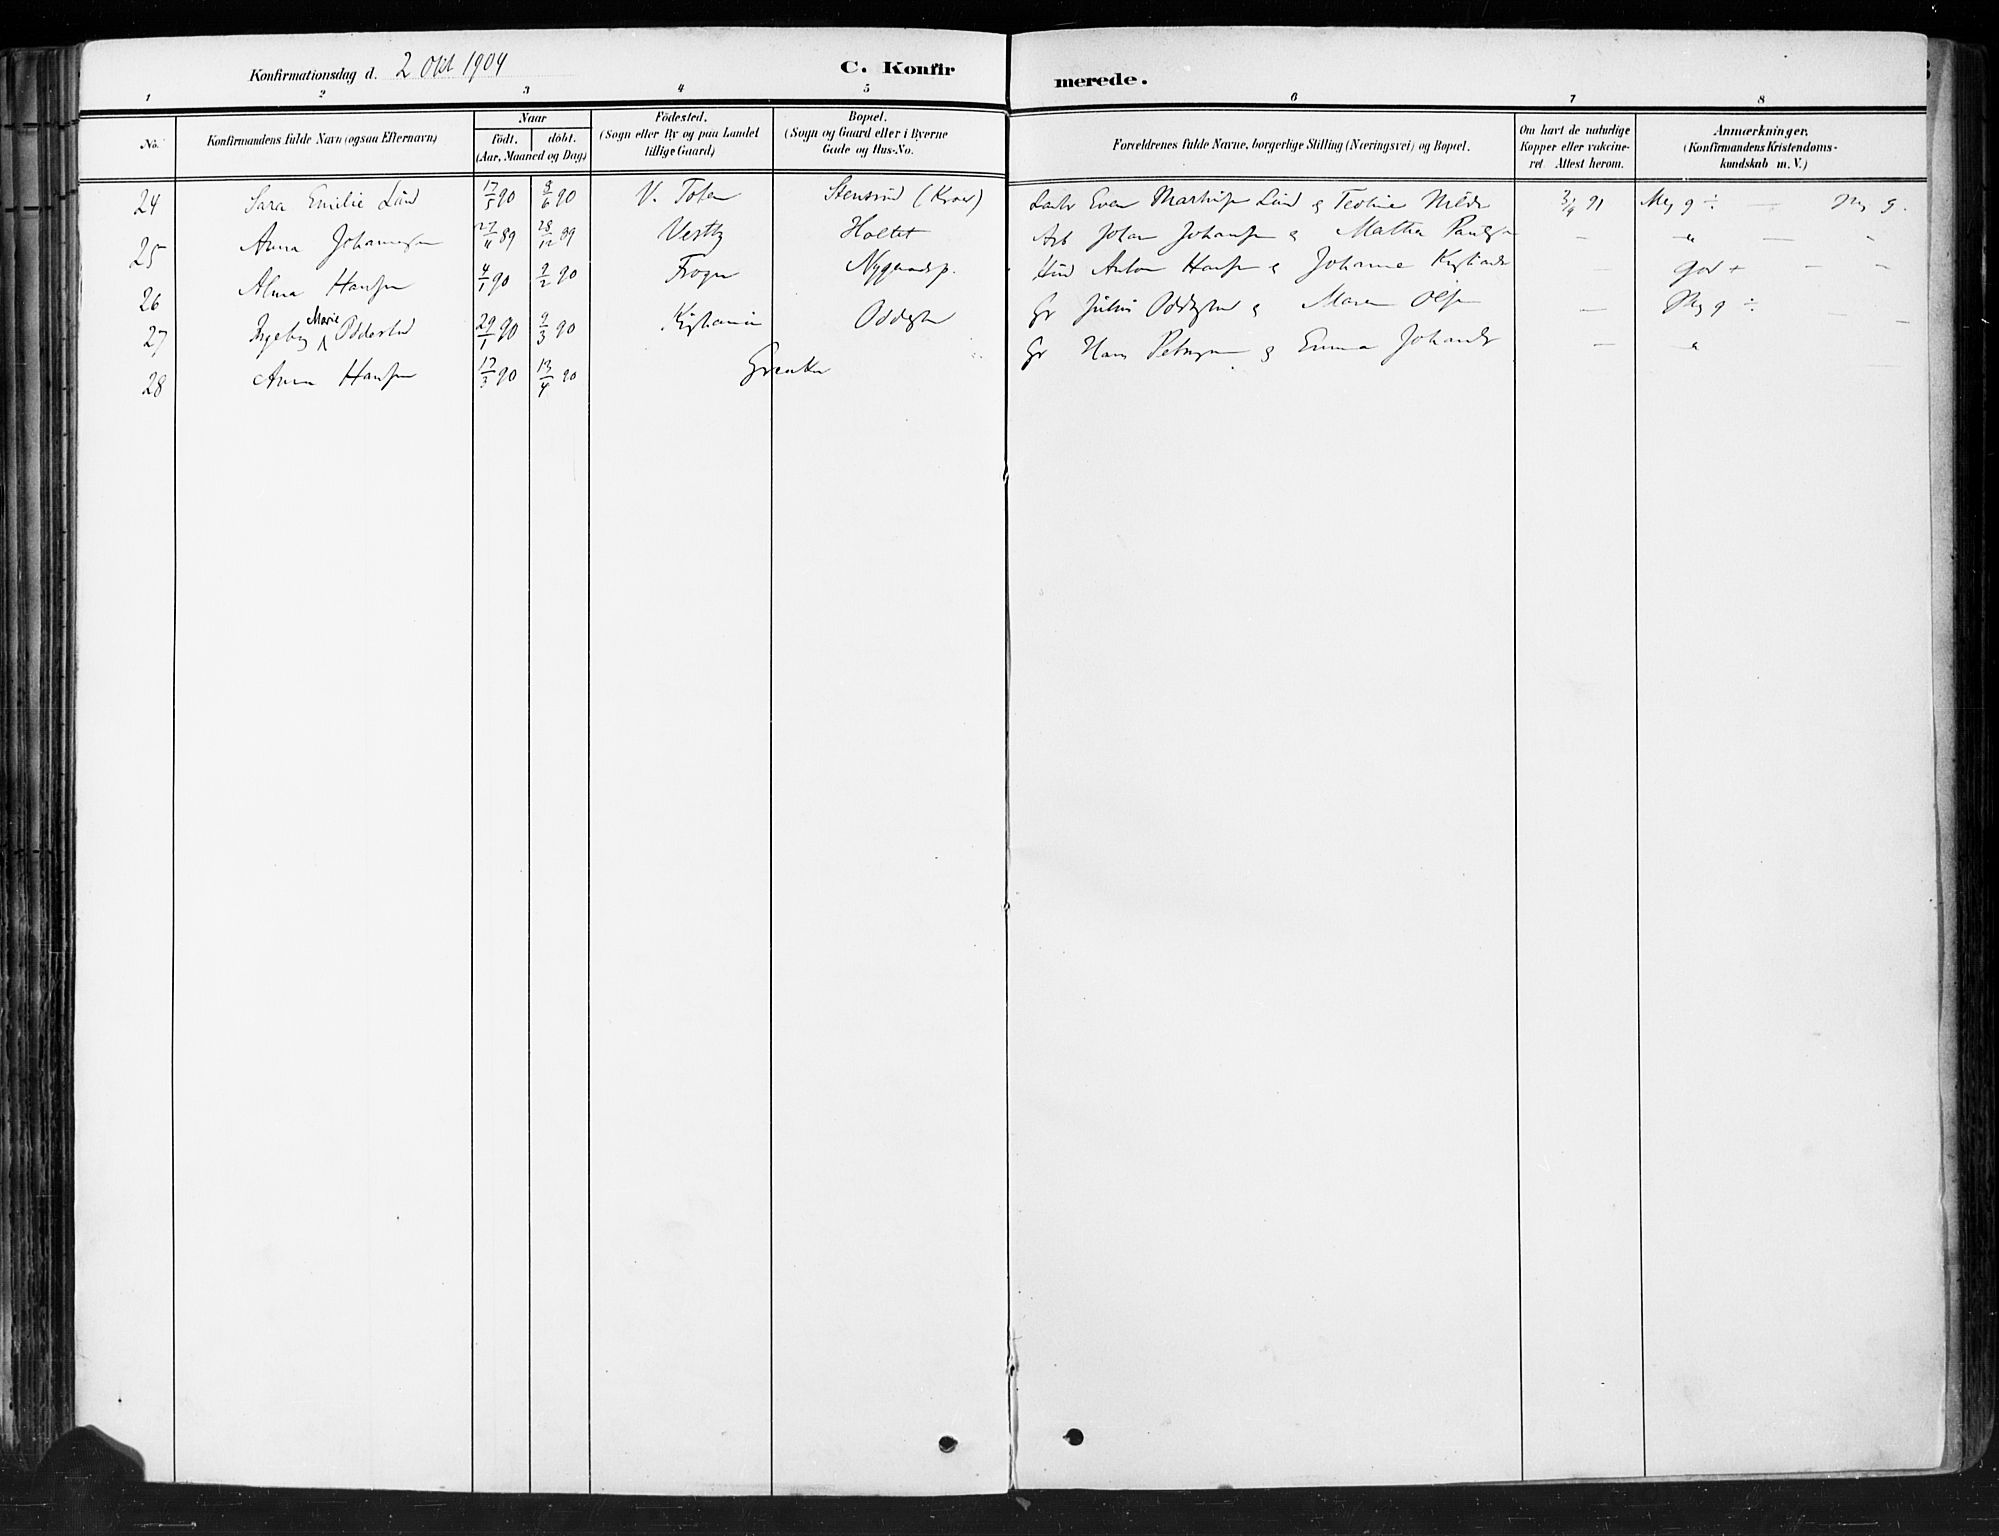 Konfirmationsdag d. 2 Okt 1904
C. Konfir
merede.
1 2 3 4 5 6 7 8
No.
Konfirmandens fulde Navn (ogsaa Efternavn)
Naar
født.
døbt.
(Aar, Maaned og Dag)
Fødested.
(Sogn eller By og paa Landet
tillige Gaard)
Bopæl.
(Sogn og Gaard eller i Byerne
Gade og Hus-No.
Forældrenes fulde Navne, borgerlige Stilling (Næringsvei) og Bopæl.
Om havt de naturlige
Kopper eller vakcine-
ret Attest herom.
Anmærkninger.
(Konfirmandens Kristendoms-
kundskab m. V.)
24 Sara Emilie Lund 17/5 90 8/6 90 V. Toten Stensrud (Kroer) Even Lund & 3/4 91 Meg g ÷ — Meg g.
25 Anna Johannesen 27/11 89 28/12 89 Vestby Holtet Arb Johan Johansen & Mathea — " —
26 Alma Hansen 4/1 90 9/2 90 Frogn Nygaardsp. Anton Hansen & Johanne — god + —
27 Ingeborg Marie Oddestad 29/1 90 9/3 90 Kristiania Oddestad Gr Julius Oddestad & Maren Olsen — Meg g ÷ —
28 Anna Hansen 17/3 90 13/4 90 Gr Hans & Emma — "